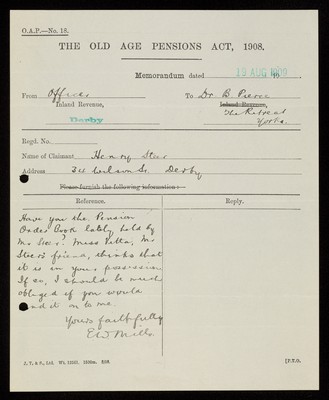 O.A.P.—No. 18.
THE OLD AGE PENSIONS ACT, 1908.
Memorandum dated 19 AUG 19
From Officer To Dr. B. Pierce
Inland Revenue, Inland Revenue,
Derby The Retreat
York.
Regd. No.
Name of Claimant Henry Steer
Address Wilson St. Derby
Please furnish the following information:—
Reference. Reply.
Have you the Pension
Order Book lately held by
Mr Steer? Miss Mr
Steer's friend, thinks that
it is in your possession
If so, I should be much
obliged if you would
send it on to me.
Yours faithfully
E W Mills
J. T. & S., Ltd. [P.T.O.